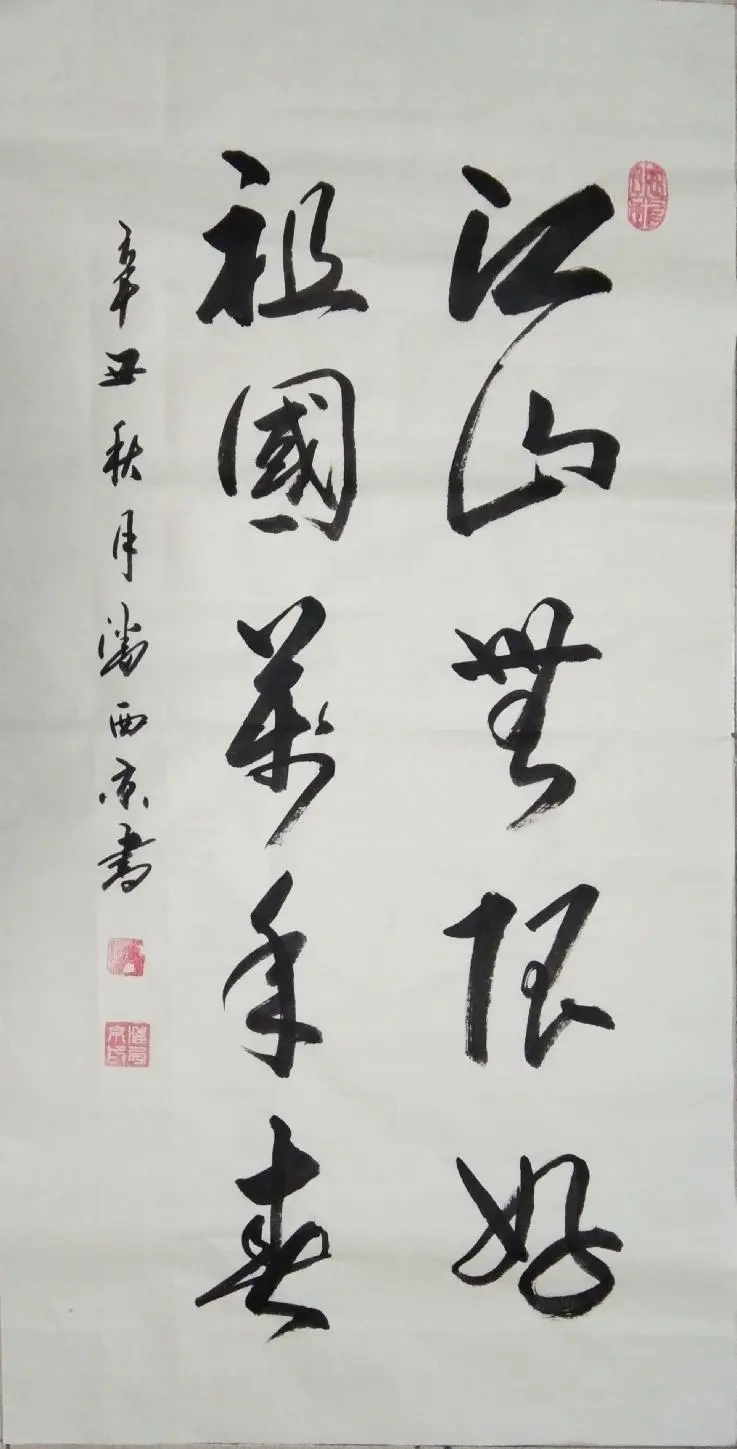 江山無限好
祖國萬年春
辛丑秋月潘西京書